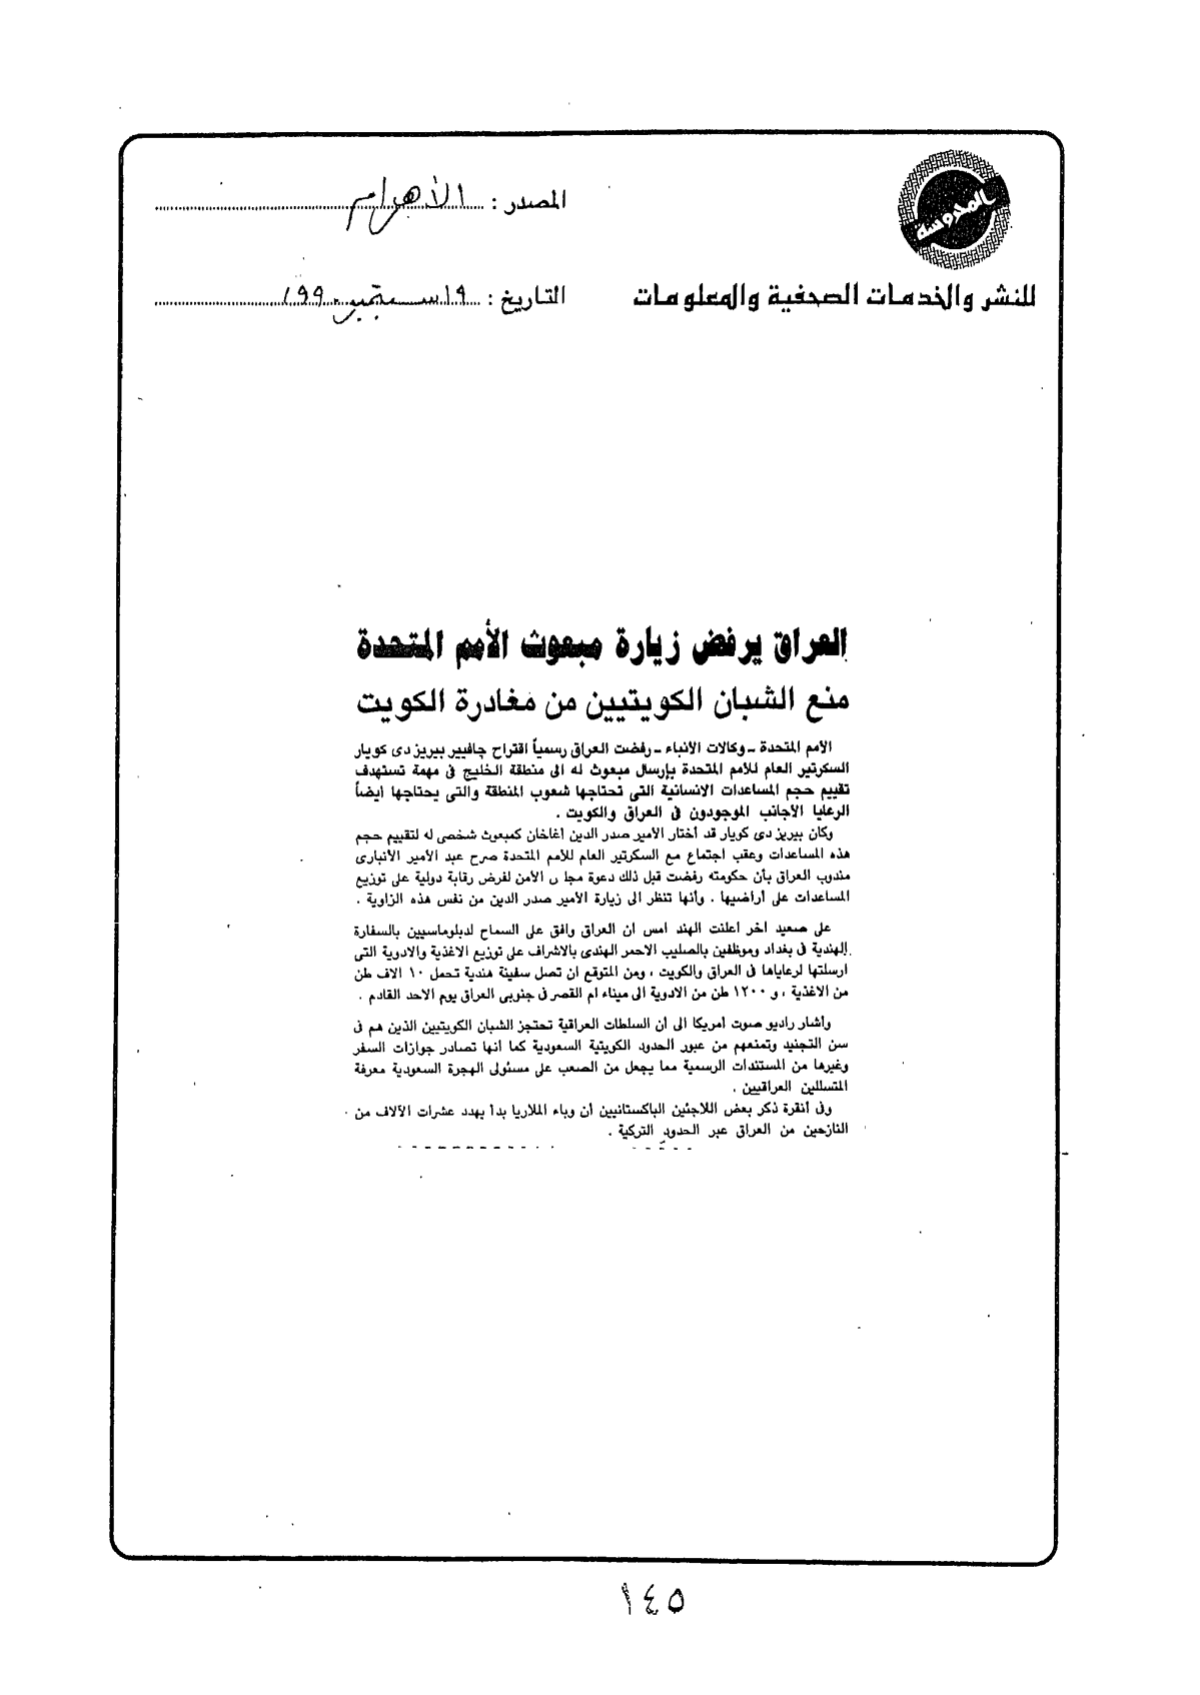 المحروسة
المصدر : الأهرام
للنشر والخدمات الصحفية والمعلومات
التاريخ : ١٩ سبتمبر ١٩٩٠
العراق يرفض زيارة مبعوث الأمم المتحدة
منع الشبان الكويتيين من مغادرة الكويت
الأمم المتحدة ـ وكالات الأنباء ـ رفضت العراق رسمياً اقتراح جافيير بيريز دى كويار
السكرتير العام للأمم المتحدة بإرسال مبعوث له الى منطقة الخليج فى مهمة تستهدف
تقييم حجم المساعدات الانسانية التى تحتاجها شعوب المنطقة والتى يحتاجها أيضاً
الرعايا الأجانب الموجودون فى العراق والكويت .
وكان بيريز دى كويار قد أختار الأمير صدر الدين أغاخان كمبعوث شخصى له لتقييم حجم
هذه المساعدات وعقب اجتماع مع السكرتير العام للأمم المتحدة صرح عبد الأمير الأنبارى
مندوب العراق بأن حكومته رفضت قبل ذلك دعوة مجلس الأمن لفرض رقابة دولية على توزيع
المساعدات على أراضيها . وأنها تنظر الى زيارة الأمير صدر الدين من نفس هذه الزاوية .
على صعيد اخر أعلنت الهند امس ان العراق وافق على السماح لدبلوماسيين بالسفارة
الهندية فى بغداد وموظفين بالصليب الاحمر الهندى بالاشراف على توزيع الاغذية والادوية التى
ارسلتها لرعاياها فى العراق والكويت ، ومن المتوقع ان تصل سفينة هندية تحمل ١٠ الاف طن
من الاغذية ، و ١٢٠٠ طن من الادوية الى ميناء ام القصر فى جنوبى العراق يوم الاحد القادم .
وأشار راديو صوت أمريكا الى أن السلطات العراقية تحتجز الشبان الكويتيين الذين هم فى
سن التجنيد وتمنعهم من عبور الحدود الكويتية السعودية كما أنها تصادر جوازات السفر
وغيرها من المستندات الرسمية مما يجعل من الصعب على مسئولى الهجرة السعودية معرفة
المتسللين العراقيين .
وفى أنقرة ذكر بعض اللاجئين الباكستانيين أن وباء الملاريا بدأ يهدد عشرات الآلاف من
النازحين من العراق عبر الحدود التركية .
١٤٥